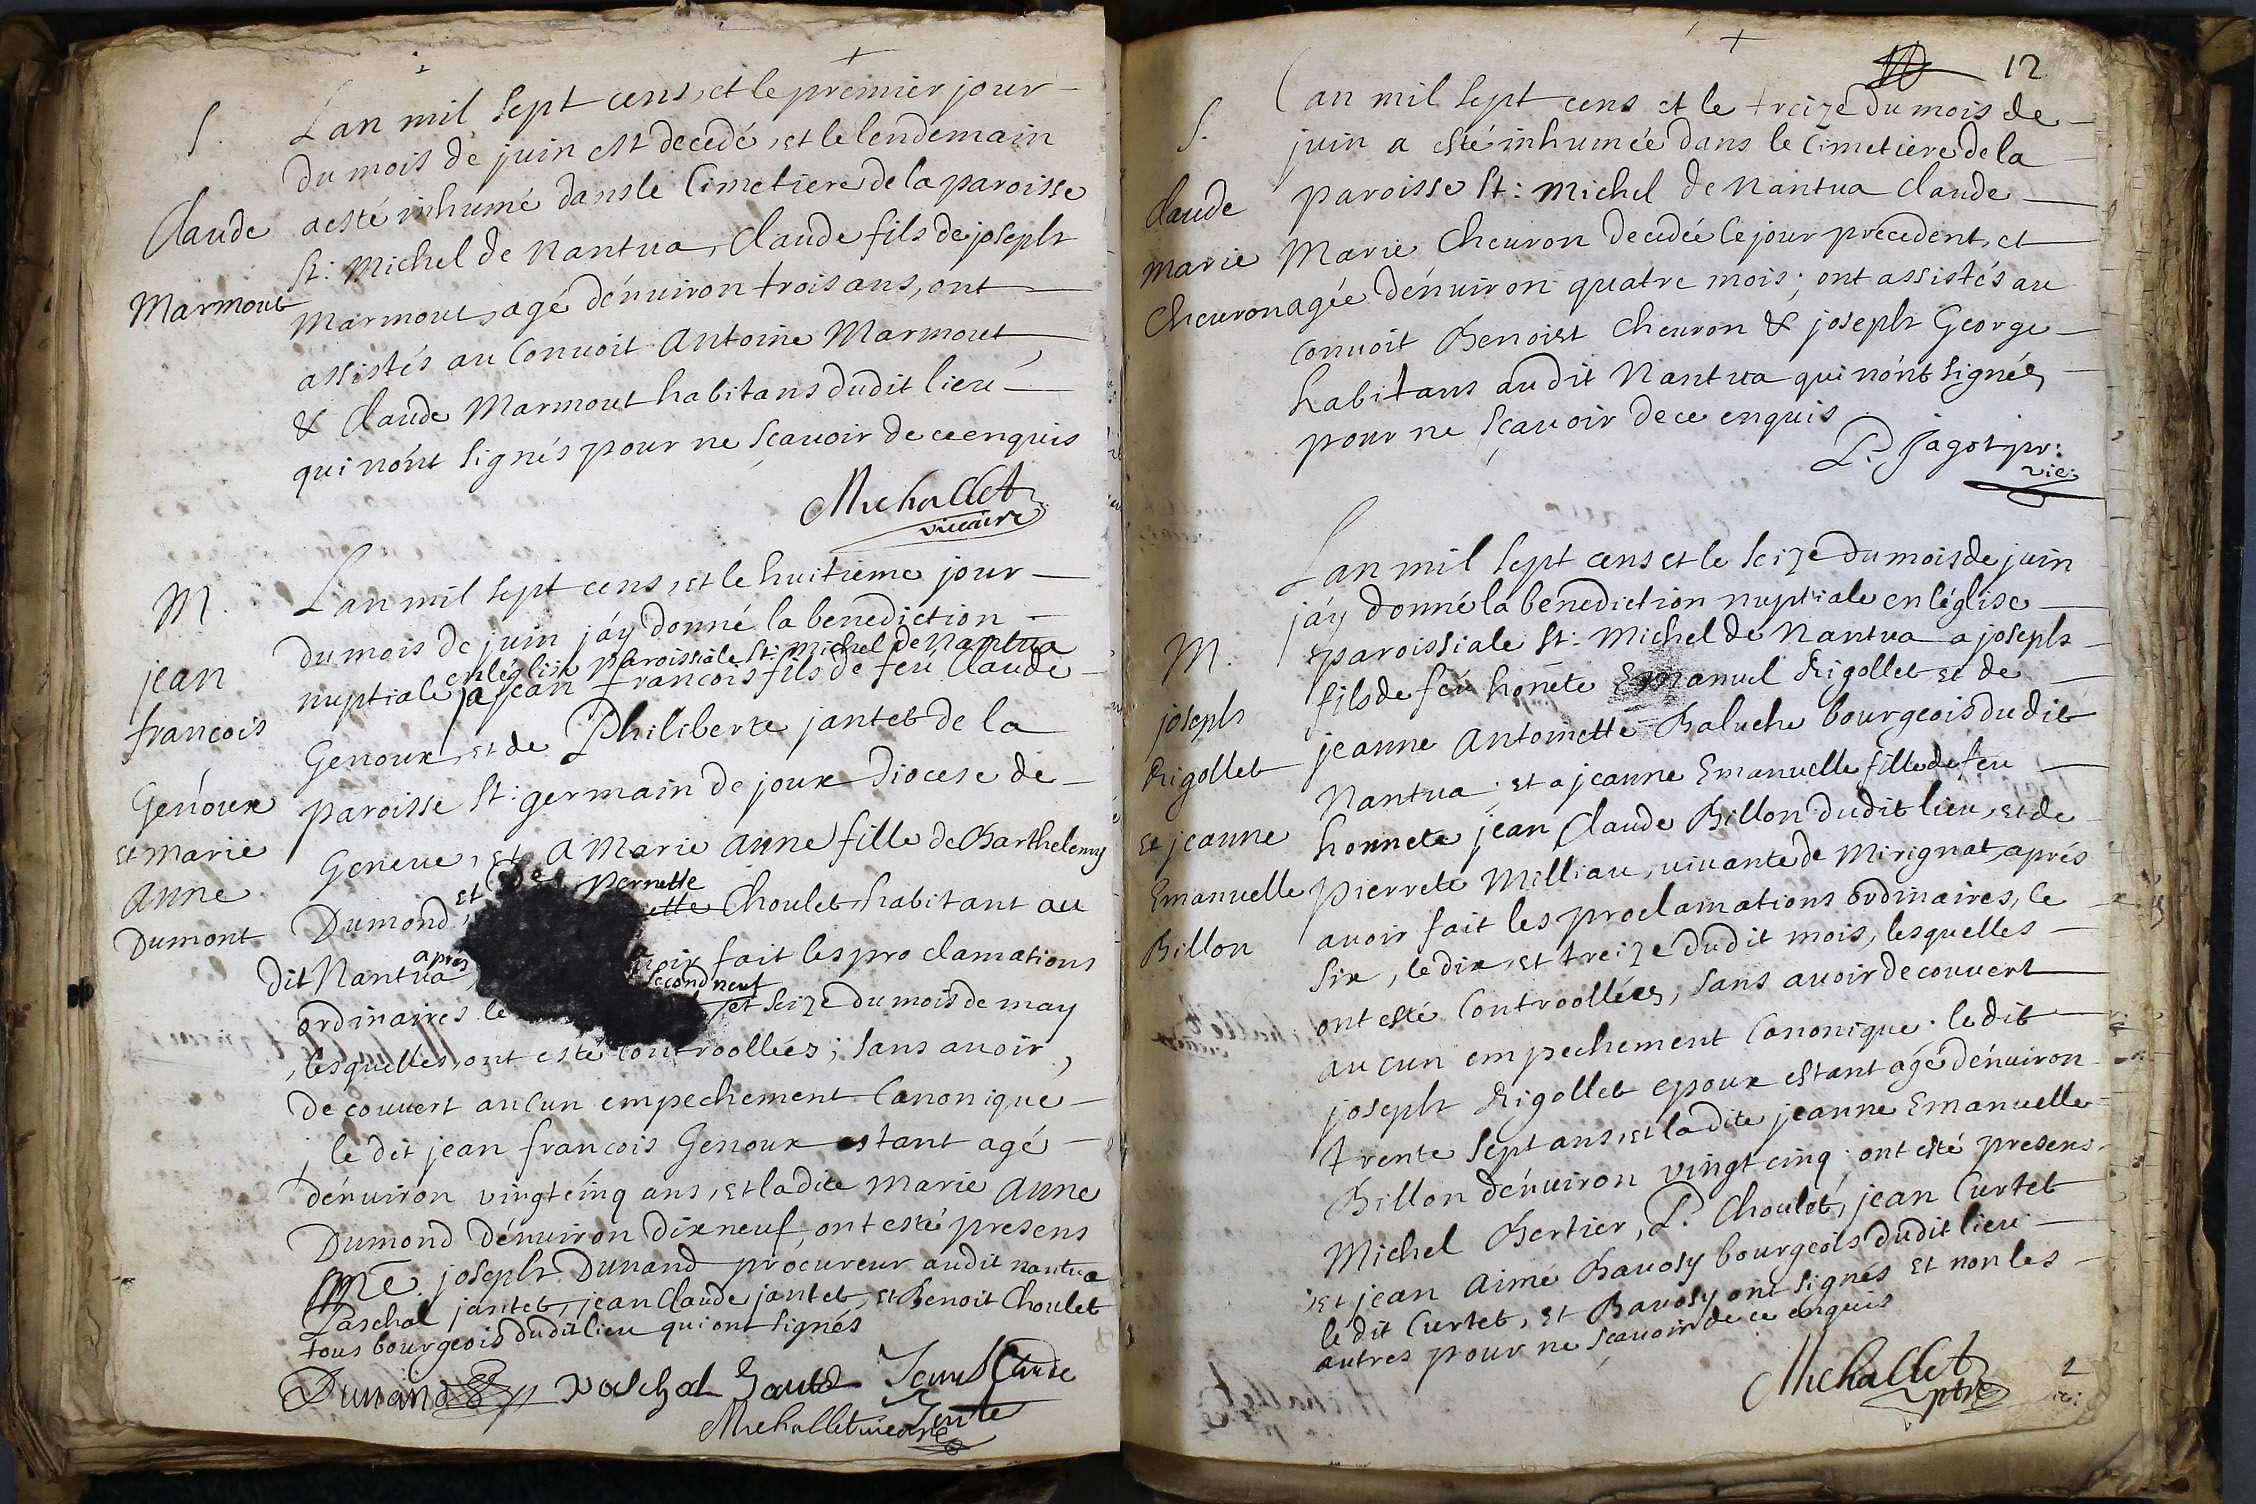 S.
Claude
Marmout
Lan mil sept cens, et le premier jour
du mois de juin est decedé, et le lendemain
a esté inhumé dans le Cimetiere de la paroisse
St: Michel de Nantua, Claude fils de joseph
Marmout, agé dénuiron trois ans, ont
assistés au Conuoit Antoine Marmout
& Claude Marmout habitans dudit lieu
qui nónt signés pour ne sçauoir de ce enquis
Michallet
vicaire
M.
jean
françois
Genoux
et marie
Anne
Dumont
Lan mil sept cens, et le huitieme jour
du mois de juin j'ay donné la benediction
en léglise paroissiale St: Michel de Nantua
nuptiale a jean francois fils de feu Claude
Genoux, et de Philiberte jantet de la
paroisse St: germain de joux Diocese de
Geneue, et a Marie Anne fille de Barthelemy
et de pernette
Dumond, Choulet habitant au
dit Nantua apres auoir fait les proclamations
second neuf
ordinaires le et seize du mois de may
, lesquelles, ont esté Controollées; sans auoir
decouuert aucun empechement Canonique
, le dit jean françois Genoux estant agé
dénuiron vingt cinq ans, et la dite Marie Anne
Dumond dénuiron dixneuf, ont esté presens
Me. joseph Dunand procureur audit nantua
Paschal jantet, jean Claude jantet, et Benoit Choulet
tous bourgeois dudit lieu qui ont signés
Dunand paschal
Michallet vicaire
12
S.
Claude
Marie
Cheuron
Lan mil sept cens et le treize du mois de
juin a esté inhumée dans le Cimetiere de la
paroisse St: Michel de Nantua Claude
Marie Cheuron decedée le jour precedent, et
agée dénuiron quatre mois; ont assistés au
conuoit Benoist Cheuron & joseph George
habitans audit Nantua qui nónt signés
pour ne sçauoir de ce enquis
P. Jagot pr:
vic:
M.
joseph
Rigollet
et jeanne
Emanuelle
Billon
Lan mil sept cens et le seize du mois de juin
j'ay donné la benediction nuptiale en léglise
paroissiale St: Michel de Nantua a joseph
fils de feu honete Emanuel Rigollet et de
jeanne Antoinette Baluche bourgeois dudit
Nantua; et a jeanne Emanuelle fille de feu
honnete jean Claude Billon dudit lieu, et de
pierrete Milliau, viuante de Mirignat, aprés
auoir fait les proclamations ordinaires, le
six, le dix, et treize dudit mois, lesquelles
ont esté Controollées, sans auoir decouuert
aucun empechement Canonique. le dit
joseph Rigollet epoux estant agé dénuiron
trente sept ans, et la dite jeanne Emanuelle
Billon dénuiron vingt cinq. ont esté presens
Michel Bertier, P. Choulet, jean Curtet
, et jean Aimé Bauosy bourgeois dudit lieu
le dit Curtet, et Bauosy ont signés et non les
autres pour ne sçauoir de ce enquis
Michallet
ptre